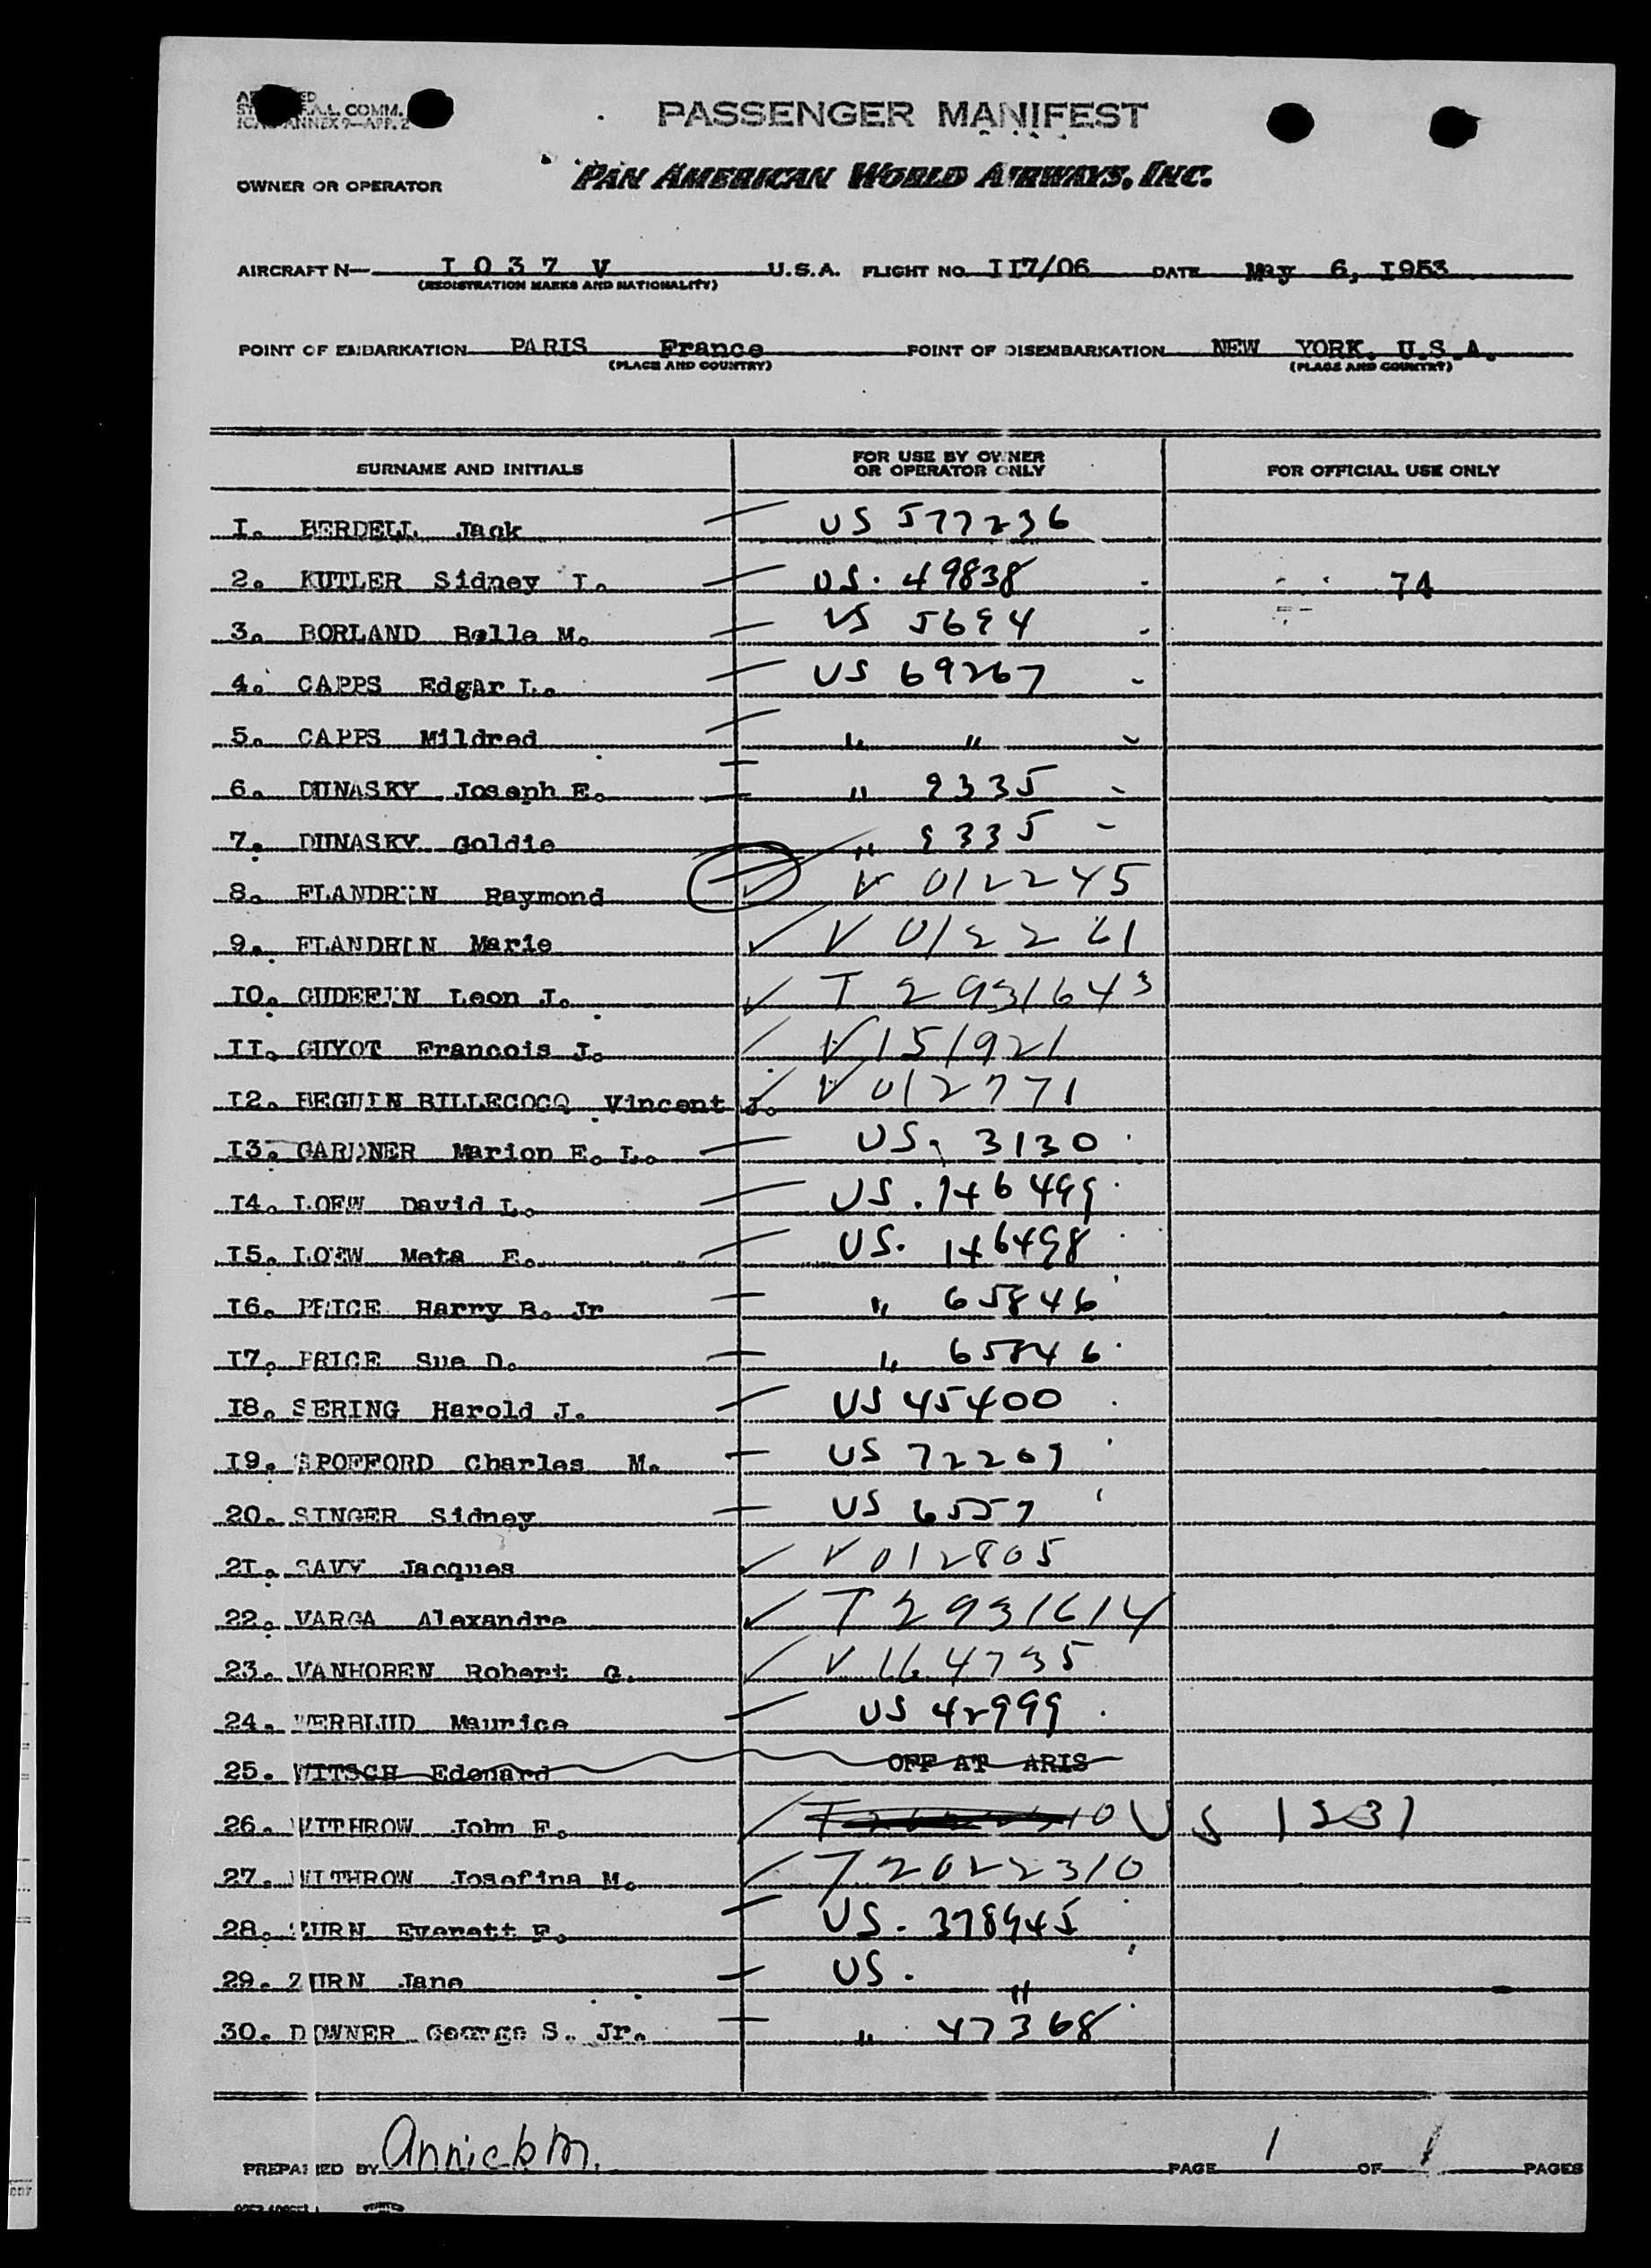 PASSENGER MANIFEST
A.L. COMM.
ANNEX 9—APP. 2
OWNER OR OPERATOR PAN AMERICAN WORLD AIRWAYS, INC.
AIRCRAFT N— I 0 3 7 V U.S.A. FLIGHT NO. II7/06 DATE May 6, I953
(REGISTRATION MARKS AND NATIONALITY)
POINT OF EMBARKATION PARIS France POINT OF DISEMBARKATION NEW YORK. U.S.A.
(PLACE AND COUNTRY) (PLACE AND COUNTRY)
SURNAME AND INITIALS FOR USE BY OWNER OR OPERATOR ONLY FOR OFFICIAL USE ONLY
I. BERDELL Jack US 577236
2. KUTLER Sidney I. US. 49838 74
3. BORLAND Belle M. US 5694
4. CAPPS Edgar L. US 69267
5. CAPPS Mildred " "
6. DUNASKY Joseph E. " 9335
7. DUNASKY Goldie " 9335
8. FLANDRIN Raymond V 012245
9. FLANDRIN Marie V 012261
I0. GUDEFIN Leon J. T 2931643
II. GUYOT Francois J. V 151921
I2. BEGUIN BILLECOCQ Vincent J. V 012771
I3. GARDNER Marion E. L. US. 3130
I4. LOEW David L. US. 146499
I5. LOEW Meta E. US. 146498
I6. PRICE Harry B. Jr " 65846
I7. PRICE Sue D. " 65846
I8. SERING Harold J. US 45400
I9. SPOFFORD Charles M. US 72209
20. SINGER Sidney US 6557
2I. SAVY Jacques V 012805
22. VARGA Alexandre T 2931614
23. VANHOREN Robert G. V 164735
24. WERBLUD Maurice US 42999
25. WITSCH Edouard OFF AT ARIS
26. WITHROW John E. US 1231
27. WITHROW Josefina M. T 2022310
28. ZURN Everett F. US. 378945
29. ZURN Jane US. "
30. DOWNER George S. Jr. " 47368
PREPARED BY Annick M. PAGE 1 OF 1 PAGES